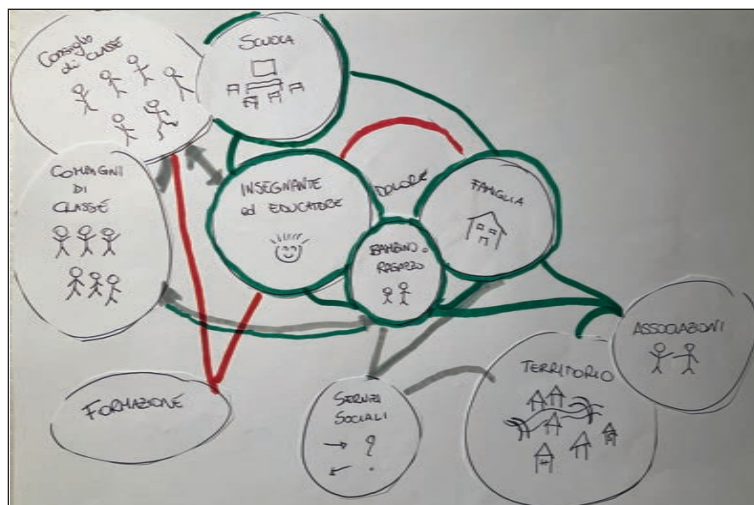 CONSIGLIO
di CLASSE
SCUOLA
COMPAGNI
DI
CLASSE
INSEGNANTE
ed EDUCATORE
DOLORE
FAMIGLIA
BAMBINO o
RAGAZZO
ASSOCIAZIONI
TERRITORIO
FORMAZIONE
SERVIZI
SOCIALI
?